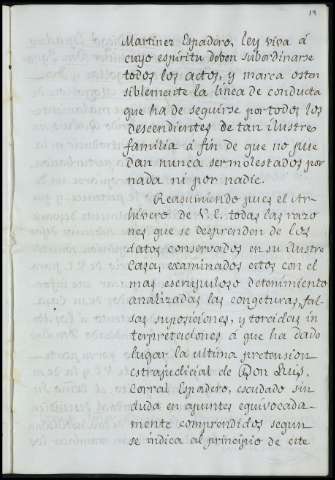 19
Martinez Espadero, ley viva á
cuyo espíritu deben subordinarse
todos los actos, y marca osten
siblemente la linea de conducta
que ha de seguirse por todos los
descendientes de tan ilustre
familia á fin de que no pue
dan nunca ser molestados por
nada ni por nadie.
Reasumiendo pues el Ar-
chivero de V. E. todas las razo
nes que se desprenden de los
datos conservados en su ilustre
Casa, examinados estos con el
mas escrupuloso detenimiento
analizadas las congeturas, fal-
sas suposiciones, y torcidas in
terpretaciones á que ha dado
lugar la ultima pretension
estrajudicial de Don Luis
Corral Espadero, escudado sin
duda en apuntes equivocada-
mente comprendidos segun
se indica al principio de este